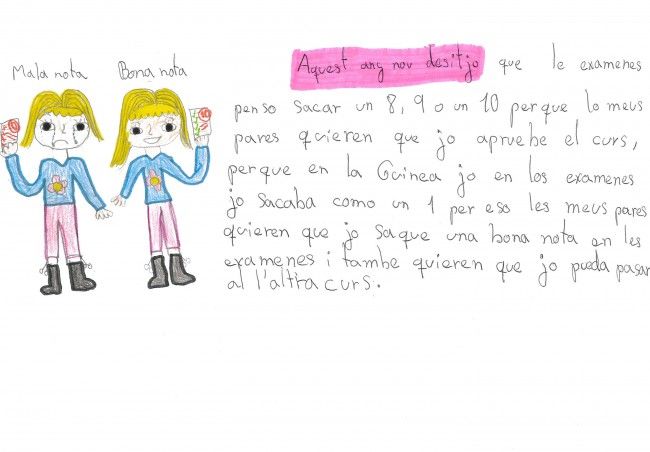 Mala nota
Bona nota
Aquest any nou desitjo que le examenes
penso sacar un 8, 9 o un 10 perque lo meus
pares quieren que jo apruebe el curs,
perque en la Guinea jo en los examenes
jo sacaba como un 1 per eso les meus pares
quieren que jo saque una bona nota en les
examenes i tambe quieren que jo pueda pasar
al l'altra curs.
10